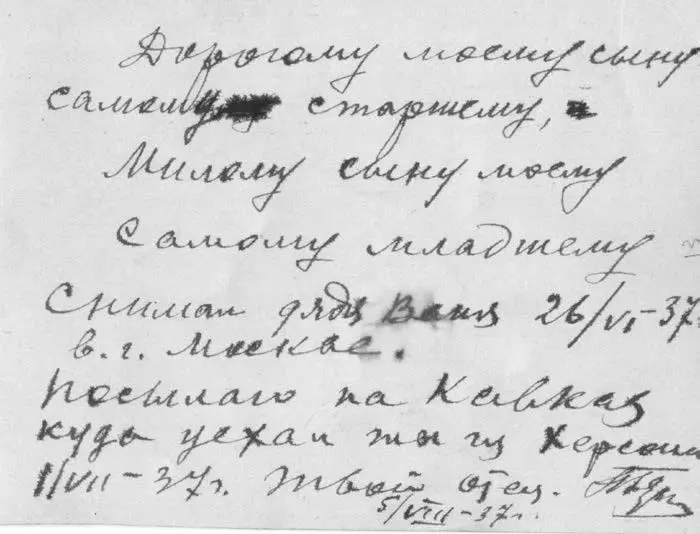 Дорогому моему сыну
самому старшему,
Милому сыну моему
самому младшему
Снимал дядя Ваня 26/VI-37г
в.г. Москве.
Посылаю на Кавказ
куда уехал ты из Херсона
1/VII-37г. Твой отец.
5/VIII-37г.